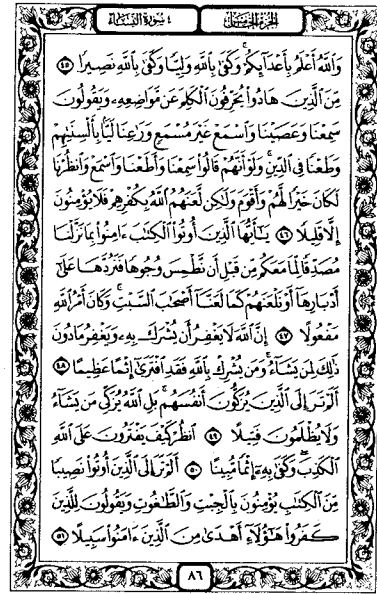 الجزء الخامس
٤ سورة النساء
وَاللَّهُ أَعْلَمُ بِأَعْدَائِكُمْ ۚ وَكَفَىٰ بِاللَّهِ وَلِيًّا وَكَفَىٰ بِاللَّهِ نَصِيرًا ٤٥
مِّنَ الَّذِينَ هَادُوا يُحَرِّفُونَ الْكَلِمَ عَن مَّوَاضِعِهِ وَيَقُولُونَ
سَمِعْنَا وَعَصَيْنَا وَاسْمَعْ غَيْرَ مُسْمَعٍ وَرَاعِنَا لَيًّا بِأَلْسِنَتِهِمْ
وَطَعْنًا فِي الدِّينِ ۚ وَلَوْ أَنَّهُمْ قَالُوا سَمِعْنَا وَأَطَعْنَا وَاسْمَعْ وَانظُرْنَا
لَكَانَ خَيْرًا لَّهُمْ وَأَقْوَمَ وَلَٰكِن لَّعَنَهُمُ اللَّهُ بِكُفْرِهِمْ فَلَا يُؤْمِنُونَ
إِلَّا قَلِيلًا ٤٦ يَا أَيُّهَا الَّذِينَ أُوتُوا الْكِتَابَ ءَامِنُوا بِمَا نَزَّلْنَا
مُصَدِّقًا لِّمَا مَعَكُم مِّن قَبْلِ أَن نَّطْمِسَ وُجُوهًا فَنَرُدَّهَا عَلَىٰ
أَدْبَارِهَا أَوْ نَلْعَنَهُمْ كَمَا لَعَنَّا أَصْحَابَ السَّبْتِ ۚ وَكَانَ أَمْرُ اللَّهِ
مَفْعُولًا ٤٧ إِنَّ اللَّهَ لَا يَغْفِرُ أَن يُشْرَكَ بِهِ وَيَغْفِرُ مَا دُونَ
ذَٰلِكَ لِمَن يَشَاءُ ۚ وَمَن يُشْرِكْ بِاللَّهِ فَقَدِ افْتَرَىٰ إِثْمًا عَظِيمًا ٤٨
أَلَمْ تَرَ إِلَى الَّذِينَ يُزَكُّونَ أَنفُسَهُم ۚ بَلِ اللَّهُ يُزَكِّي مَن يَشَاءُ
وَلَا يُظْلَمُونَ فَتِيلًا ٤٩ انظُرْ كَيْفَ يَفْتَرُونَ عَلَى اللَّهِ
الْكَذِبَ ۖ وَكَفَىٰ بِهِ إِثْمًا مُّبِينًا ٥٠ أَلَمْ تَرَ إِلَى الَّذِينَ أُوتُوا نَصِيبًا
مِّنَ الْكِتَابِ يُؤْمِنُونَ بِالْجِبْتِ وَالطَّاغُوتِ وَيَقُولُونَ لِلَّذِينَ
كَفَرُوا هَٰؤُلَاءِ أَهْدَىٰ مِنَ الَّذِينَ ءَامَنُوا سَبِيلًا ٥١
٨٦